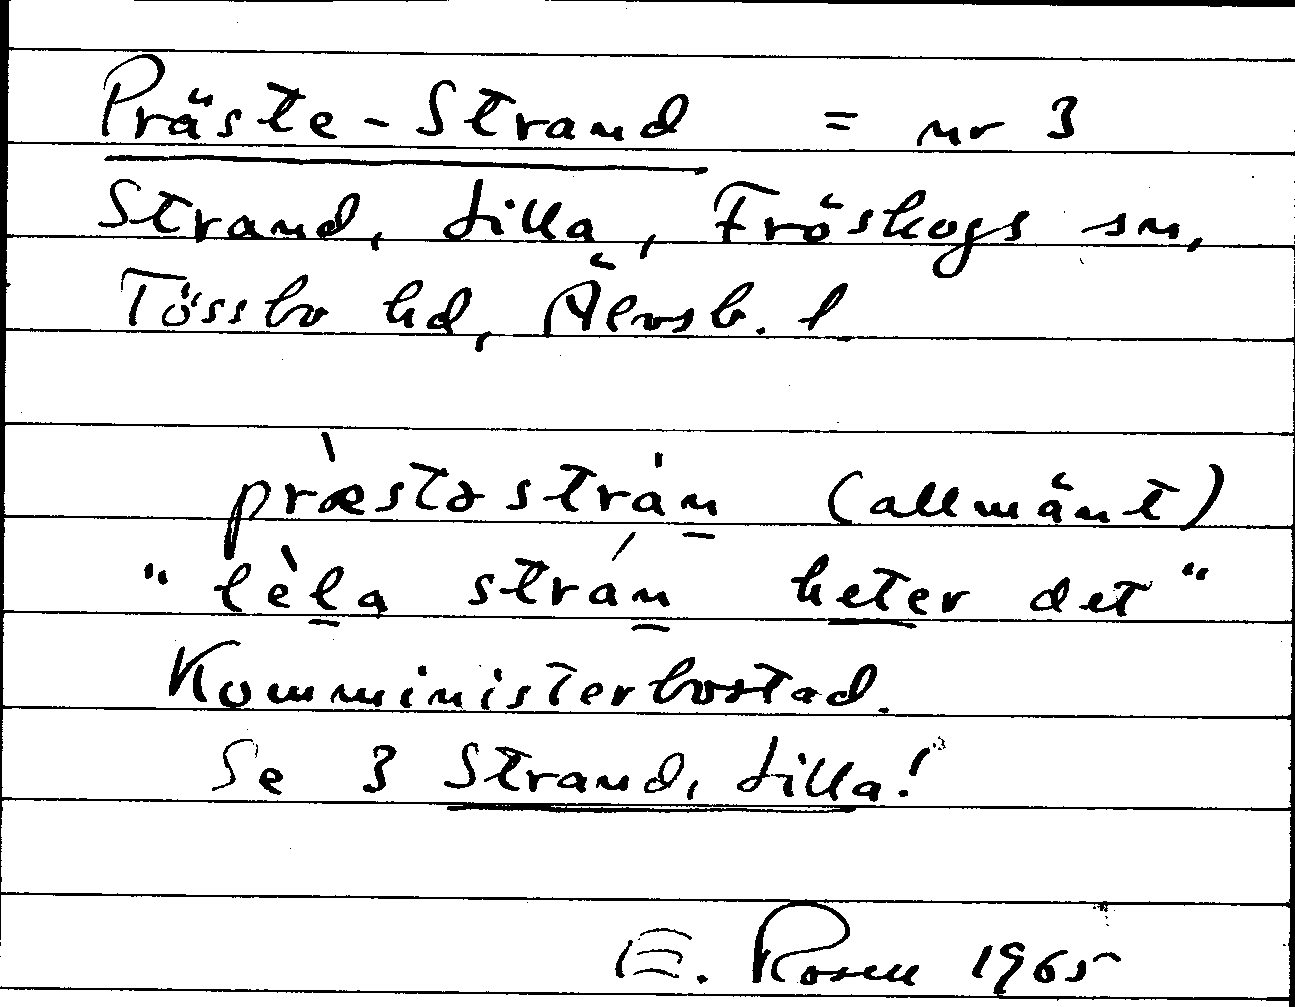 Präste-Strand = nr 3
Strand, Lilla, Fröskogs sn,
Tössbo hd, Älvsb. l
præ̀stəstrán̲ (allmänt)
"lèl̲a strán̲ heter det"
Komministerbostad.
Se 3 Strand, Lilla!
E. Rosen 1965